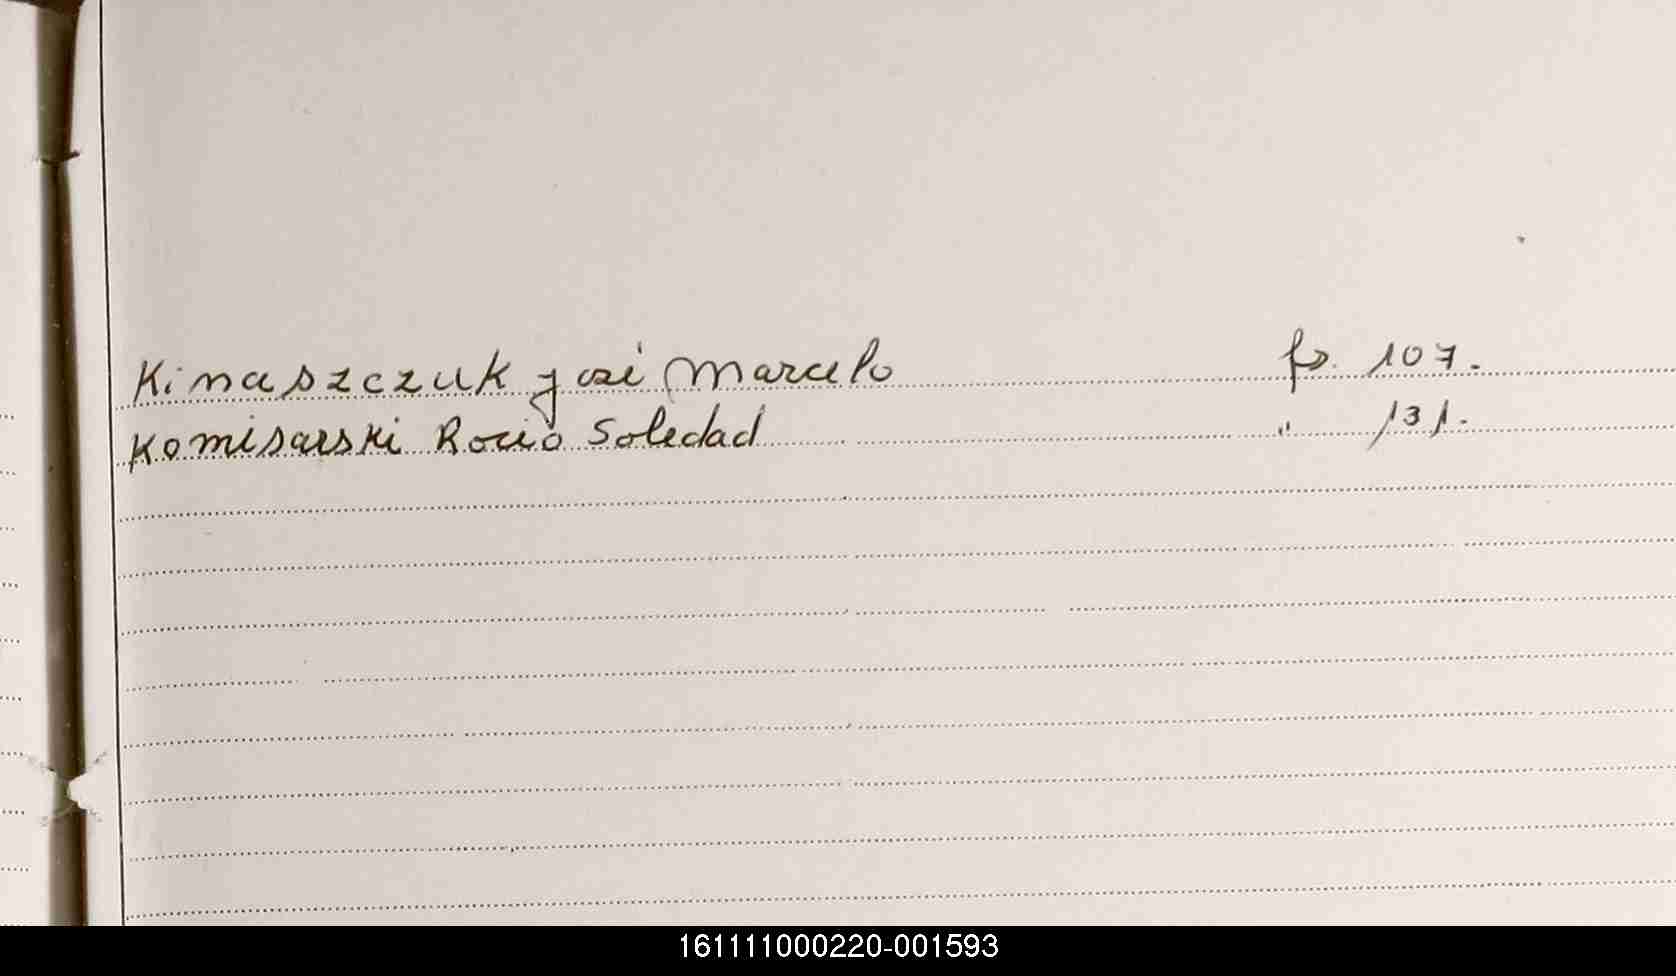 Kinaszczuk José Marcelo fs. 107.
Komisarski Rocio Soledad " 131.
161111000220-001593